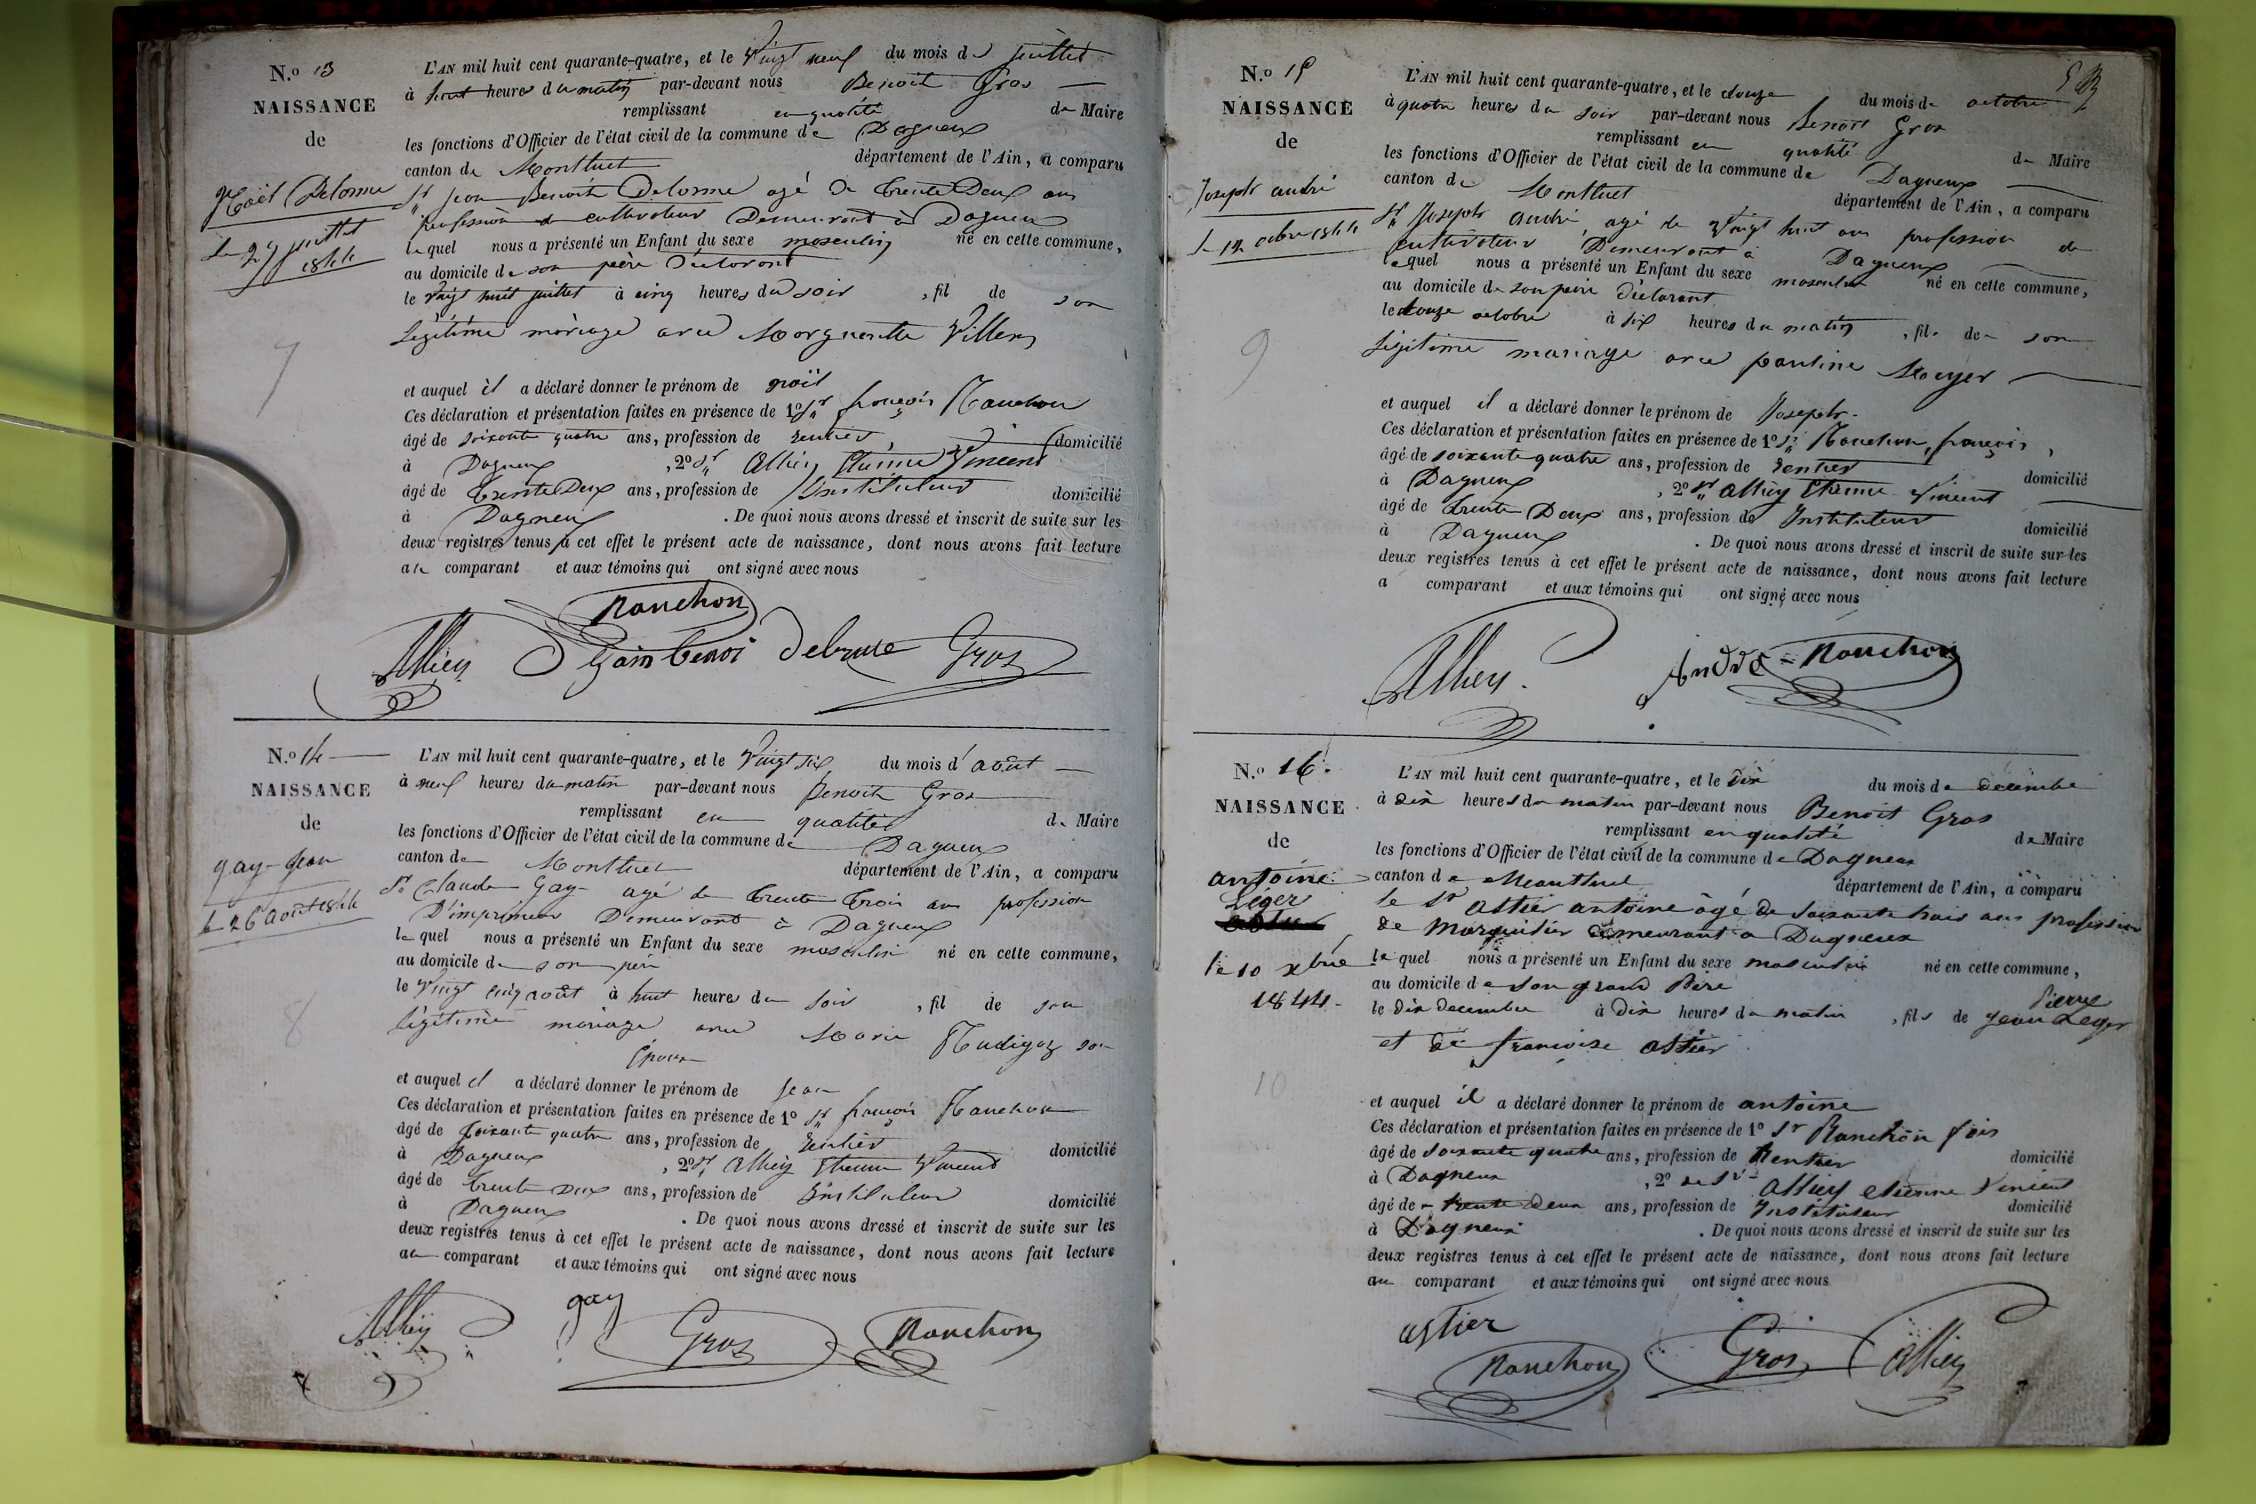 N.o 13
NAISSANCE
de
Noël Delorme
Le 29 juillet
1844
7
L'AN mil huit cent quarante-quatre, et le Vingt neuf du mois de juillet
à heures du matin par-devant nous Benoit Gros
remplissant en qualité de Maire
les fonctions d'Officier de l'état civil de la commune de Dagneux
canton de Montluel département de l'Ain, a comparu
Sr jean Benoit Delorme agé de trente Deux ans
profession de cultivateur Demeurant à Dagneux
lequel nous a présenté un Enfant du sexe masculin né en cette commune,
au domicile de son père Déclarant
le Vingt huit juillet à cinq heures du soir, fil de son
Légitime mariage avec Marguerite Villers
et auquel il a déclaré donner le prénom de noël
Ces déclaration et présentation faites en présence de 1o Sr françois Ranchon
âgé de soixante quatre ans, profession de rentier, domicilié
à Dagneux, 2o Sr Allliey Etienne Vincent
âgé de trente Deux ans, profession de Instituteur domicilié
à Dagneux. De quoi nous avons dressé et inscrit de suite sur les
deux registres tenus à cet effet le présent acte de naissance, dont nous avons fait lecture
au comparant et aux témoins qui ont signé avec nous
Ranchon
Gros
N.o 14
NAISSANCE
de
gay jean
le 26 août 1844
8
L'AN mil huit cent quarante-quatre, et le Vingt six du mois d'août
à neuf heures du matin par-devant nous Benoit Gros
remplissant en qualité de Maire
les fonctions d'Officier de l'état civil de la commune de Dagneux
canton de Montluel département de l'Ain, a comparu
Sr Claude Gay agé de trente trois ans profession
D'imprimeur Demeurant à Dagneux
lequel nous a présenté un Enfant du sexe masculin né en cette commune,
au domicile de son père
le Vingt cinq août à huit heures du soir, fil de son
légitime mariage avec Marie Rudigoz son
Epouse
et auquel il a déclaré donner le prénom de jean
Ces déclaration et présentation faites en présence de 1o Sr françois Ranchon
âgé de soixante quatre ans, profession de rentier domicilié
à Dagneux, 2o Sr Alliey Etienne Vincent
âgé de trente deux ans, profession de Instituteur domicilié
à Dagneux. De quoi nous avons dressé et inscrit de suite sur les
deux registres tenus à cet effet le présent acte de naissance, dont nous avons fait lecture
au comparant et aux témoins qui ont signé avec nous
Alliey gay Gros Ranchon
N.o 15
NAISSANCE
de
Joseph andré
le 12 octobre 1844
9
L'AN mil huit cent quarante-quatre, et le douze du mois de octobre
à quatre heures du soir par-devant nous Benoit Gros
remplissant en qualité de Maire
les fonctions d'Officier de l'état civil de la commune de Dagneux
canton de Montluel département de l'Ain, a comparu
Sr Joseph andré, agé de Vingt huit ans profession de
cultivateur Demeurant à Dagneux
lequel nous a présenté un Enfant du sexe masculin né en cette commune,
au domicile de son père Déclarant
le douze octobre à six heures du matin, fil de son
Légitime mariage avec pauline Mouyer
et auquel il a déclaré donner le prénom de Joseph
Ces déclaration et présentation faites en présence de 1o Sr Ranchon, françois,
âgé de soixante quatre ans, profession de rentier domicilié
à Dagneux, 2o Sr Alliey Etienne Vincent
âgé de trente Deux ans, profession de Instituteur domicilié
à Dagneux. De quoi nous avons dressé et inscrit de suite sur les
deux registres tenus à cet effet le présent acte de naissance, dont nous avons fait lecture
a comparant et aux témoins qui ont signé avec nous
Alliey andré Ranchon
N.o 16.
NAISSANCE
de
antoine
Léger
le 10 xbre
1844
10
L'AN mil huit cent quarante-quatre, et le dix du mois de décembre
à dix heures du matin par-devant nous Benoit Gros
remplissant en qualité de Maire
les fonctions d'Officier de l'état civil de la commune de Dagneux
canton de Montluel département de l'Ain, a comparu
le Sr astier antoine âgé de soixante trois ans profession
de demeurant a Dagneux
lequel nous a présenté un Enfant du sexe masculin né en cette commune,
au domicile de son grand Père
le dix décembre à dix heures du matin, fils de jean Pierre Leger
et de francoise astier
et auquel il a déclaré donner le prénom de antoine
Ces déclaration et présentation faites en présence de 1o Sr Ranchon fois
âgé de soixante quatre ans, profession de Rentier domicilié
à Dagneux, 2o le Sr Alliey etienne Vincent
âgé de trente deux ans, profession de Instituteur domicilié
à Dagneux. De quoi nous avons dressé et inscrit de suite sur les
deux registres tenus à cet effet le présent acte de naissance, dont nous avons fait lecture
au comparant et aux témoins qui ont signé avec nous
astier
Ranchon Gros Alliey